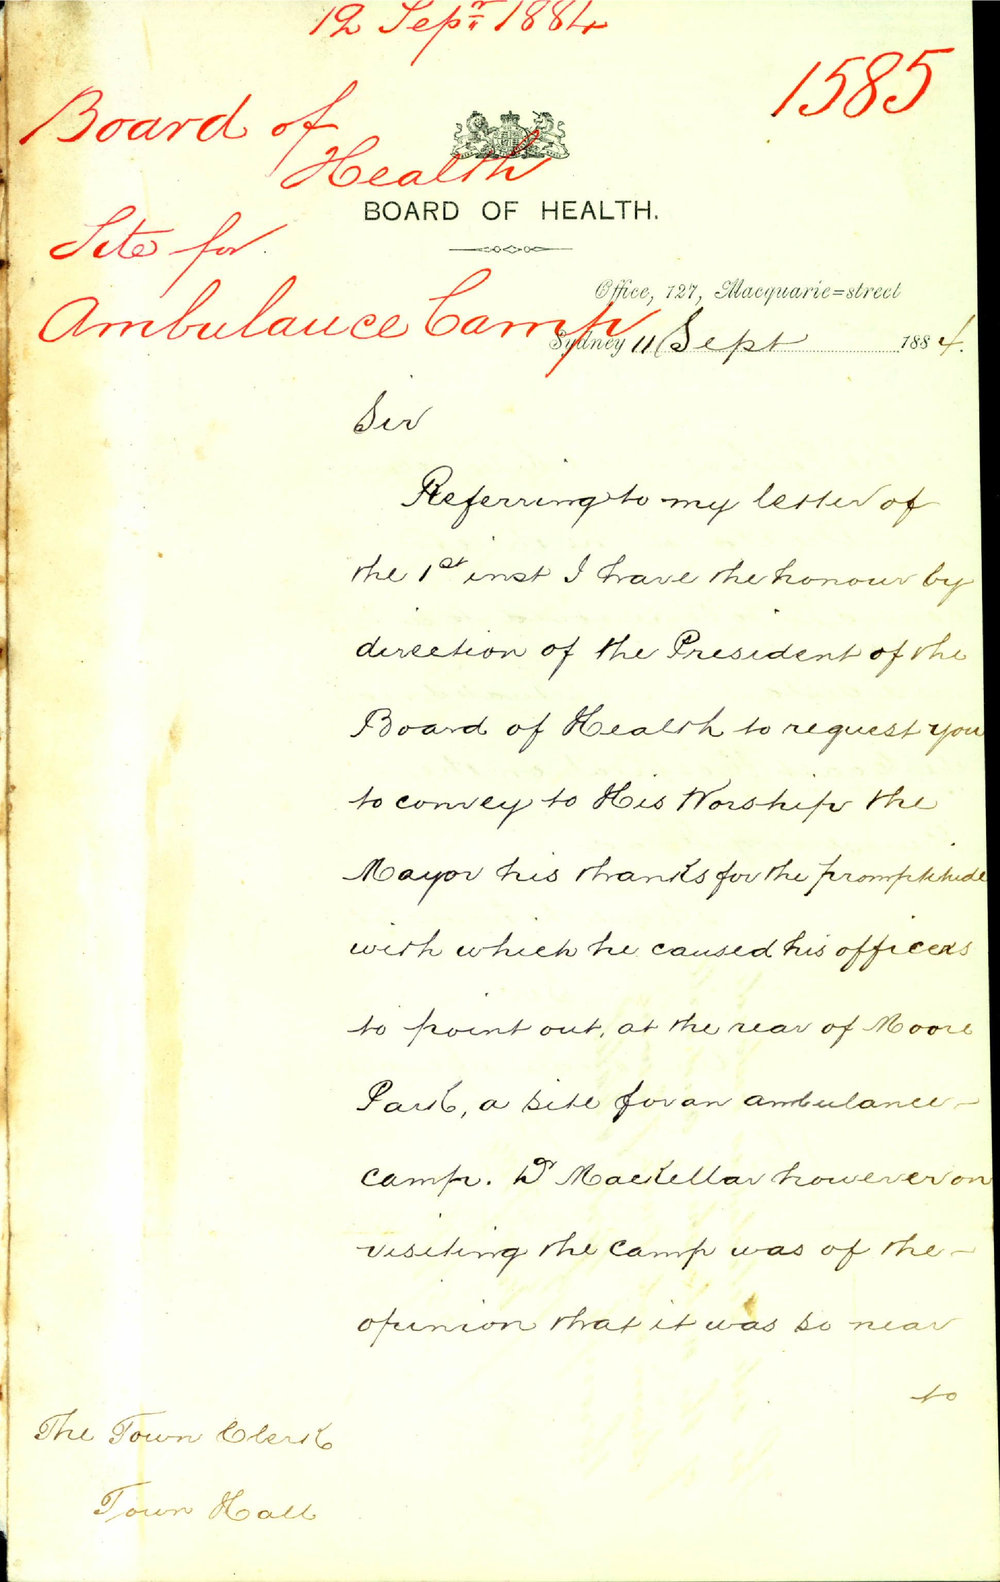 12 Sepr 1884
1585
Board of
Health
BOARD OF HEALTH.
Site for
Office, 127, Macquarie=street
Ambulance Camp
Sydney 11 Sept 1884.
Sir
Referring to my letter of
the 1st inst I have the honour by
direction of the President of the
Board of Health to request you
to convey to His Worship the
Mayor his thanks for the promptitude
with which he caused his officers
to point out, at the rear of Moore
Park, a site for an ambulance-
camp. Dr MacKellar however on
visiting the camp was of the-
opinion that it was so near
to
The Town Clerk
Town Hall